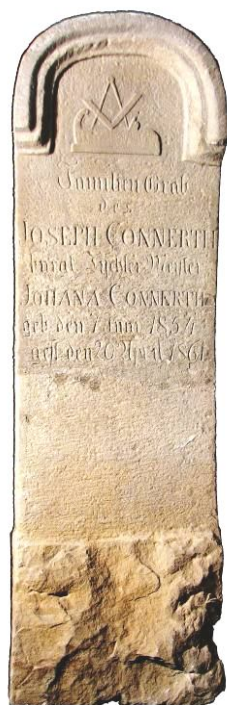 Familien Grab
des
JOSEPH CONNERTH
burgl Tychler Meister
JOHANA CONNERTH
geb den 7 Juni 1834
gest den 26 April 1861